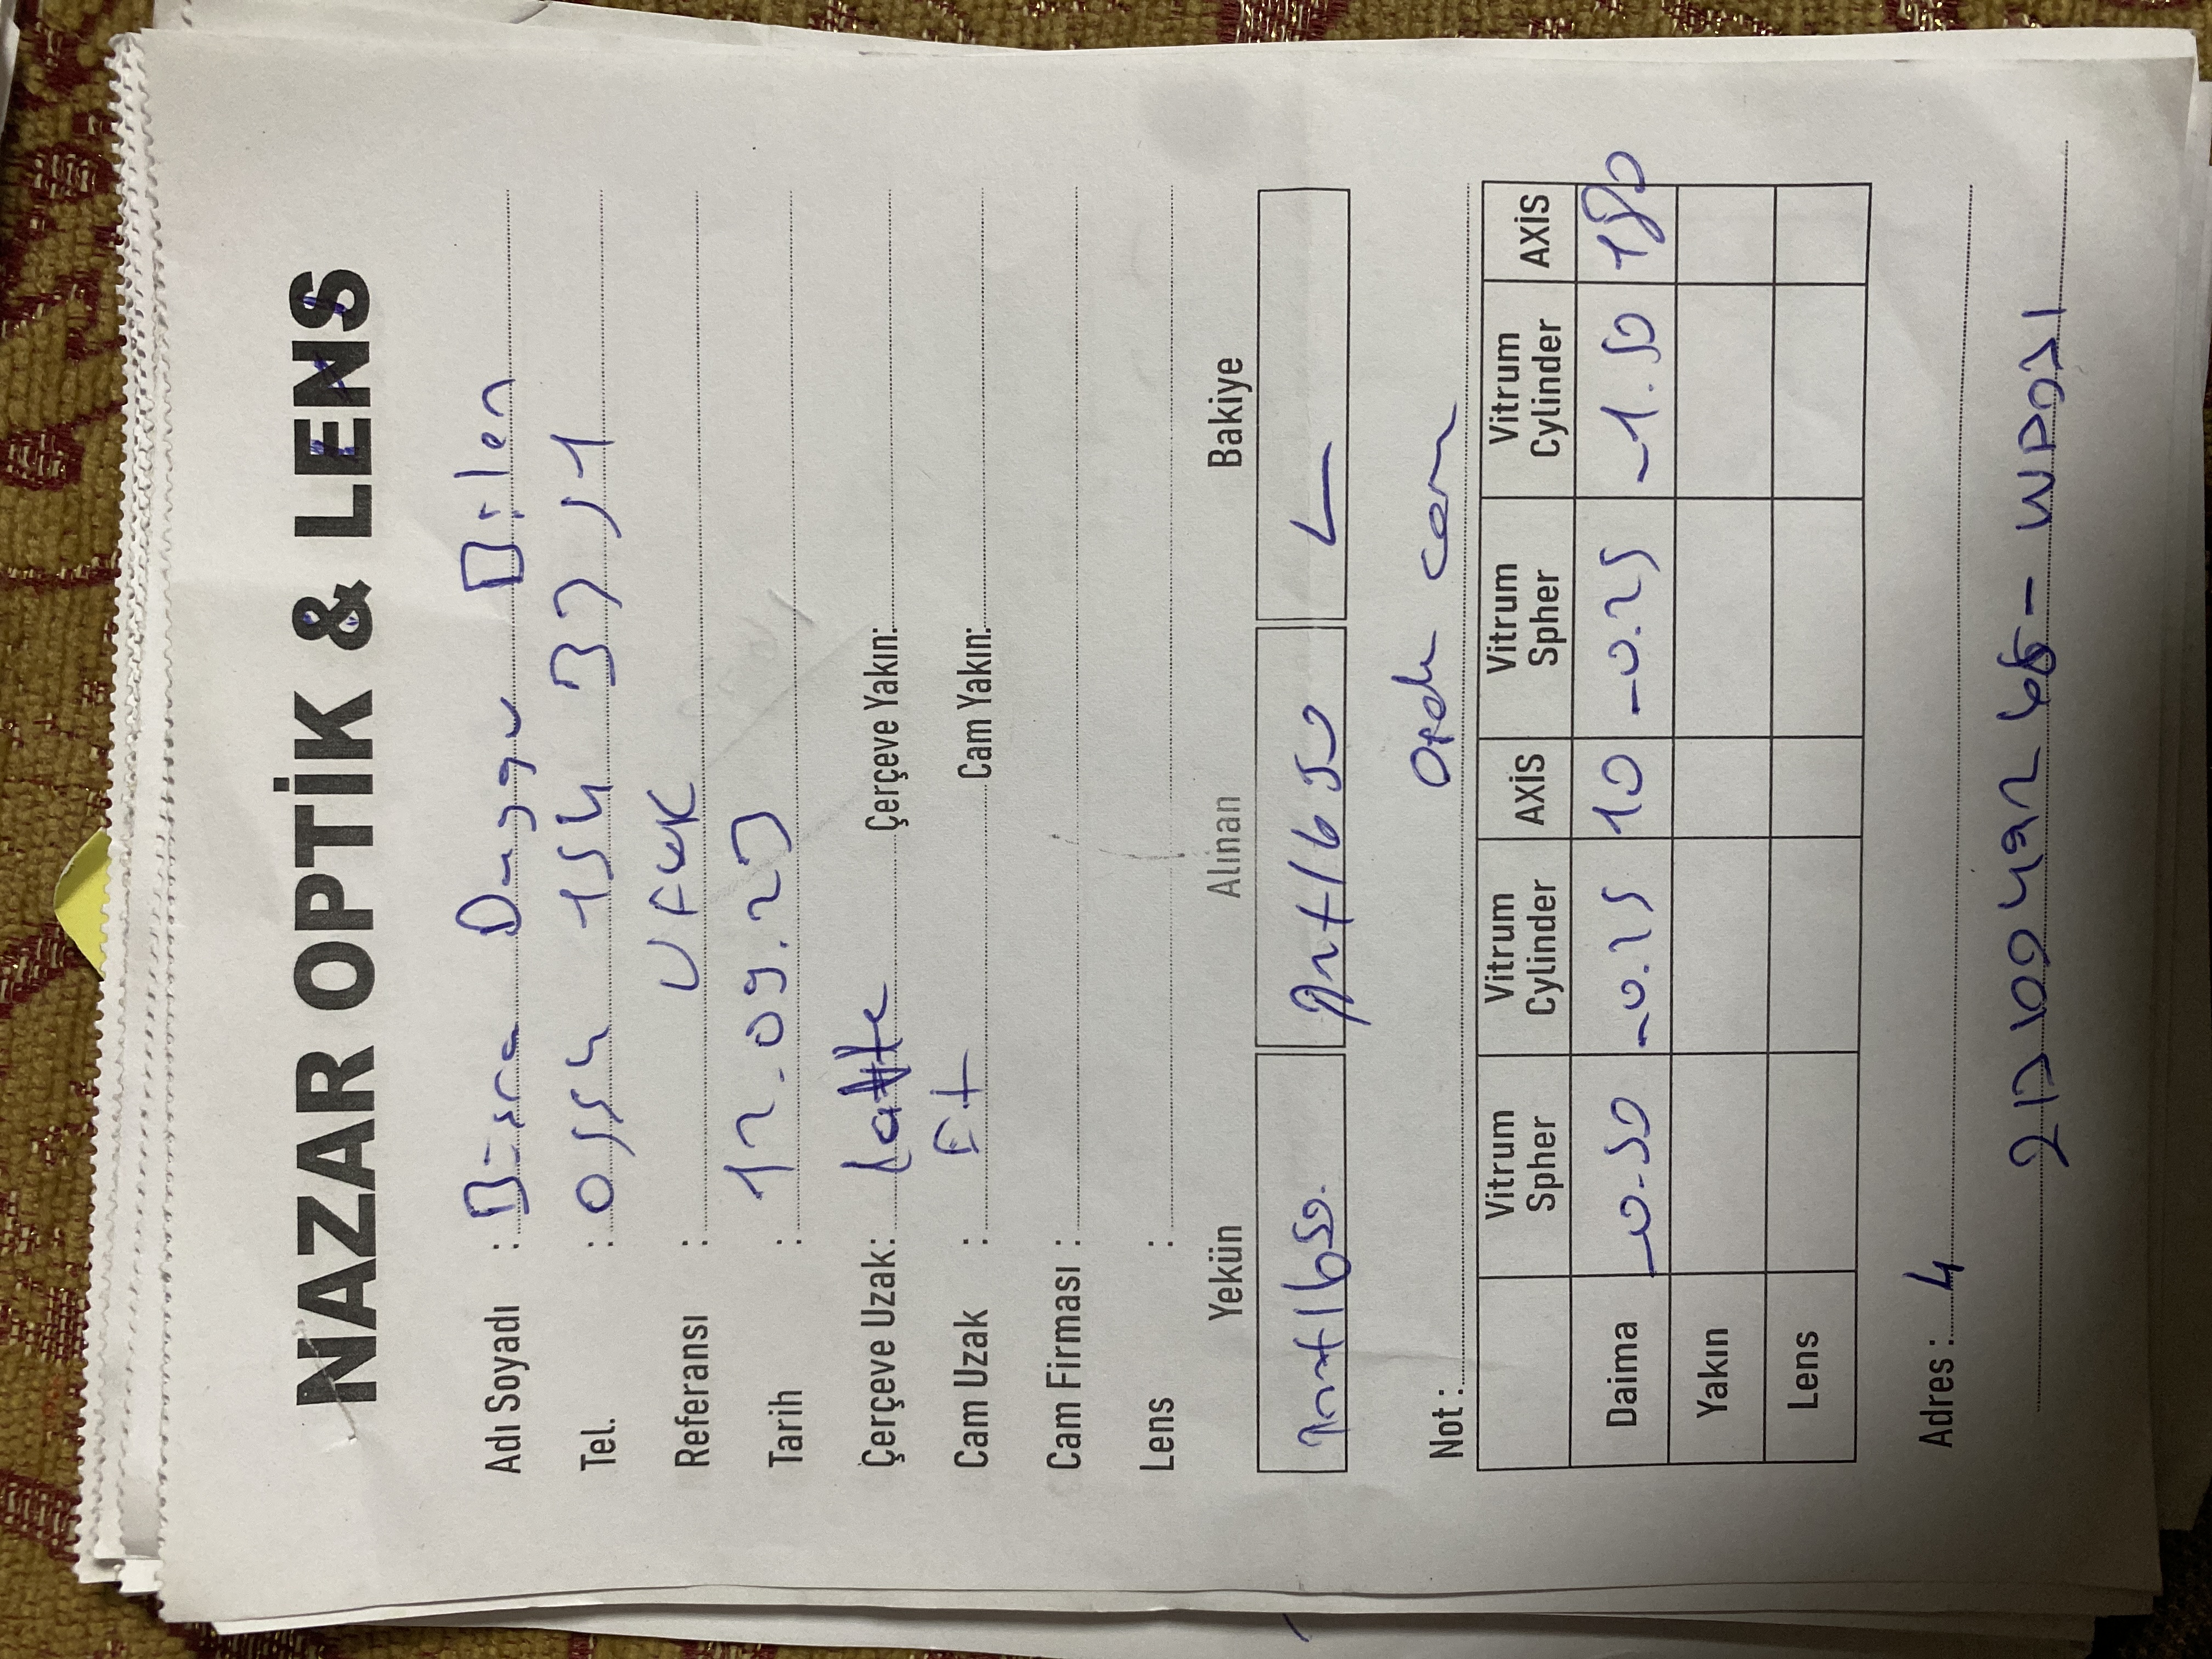 NAZAR OPTİK & LENS
Adı Soyadı : Büşra Duygu Bilen
Tel. : 0554 154 33 51
Referansı : UFUK
Tarih : 12.09.23
Çerçeve Uzak: latte Çerçeve Yakın:
Cam Uzak : Cam Yakın:
Cam Firması :
Lens :
Yekün Alınan Bakiye
+1650. +1650
Not : cam
Vitrum Spher Vitrum Cylinder AXİS Vitrum Spher Vitrum Cylinder AXİS
Daima -0.50 -0.25 10 -0.25 -1.50 180
Yakın
Lens
Adres : 4